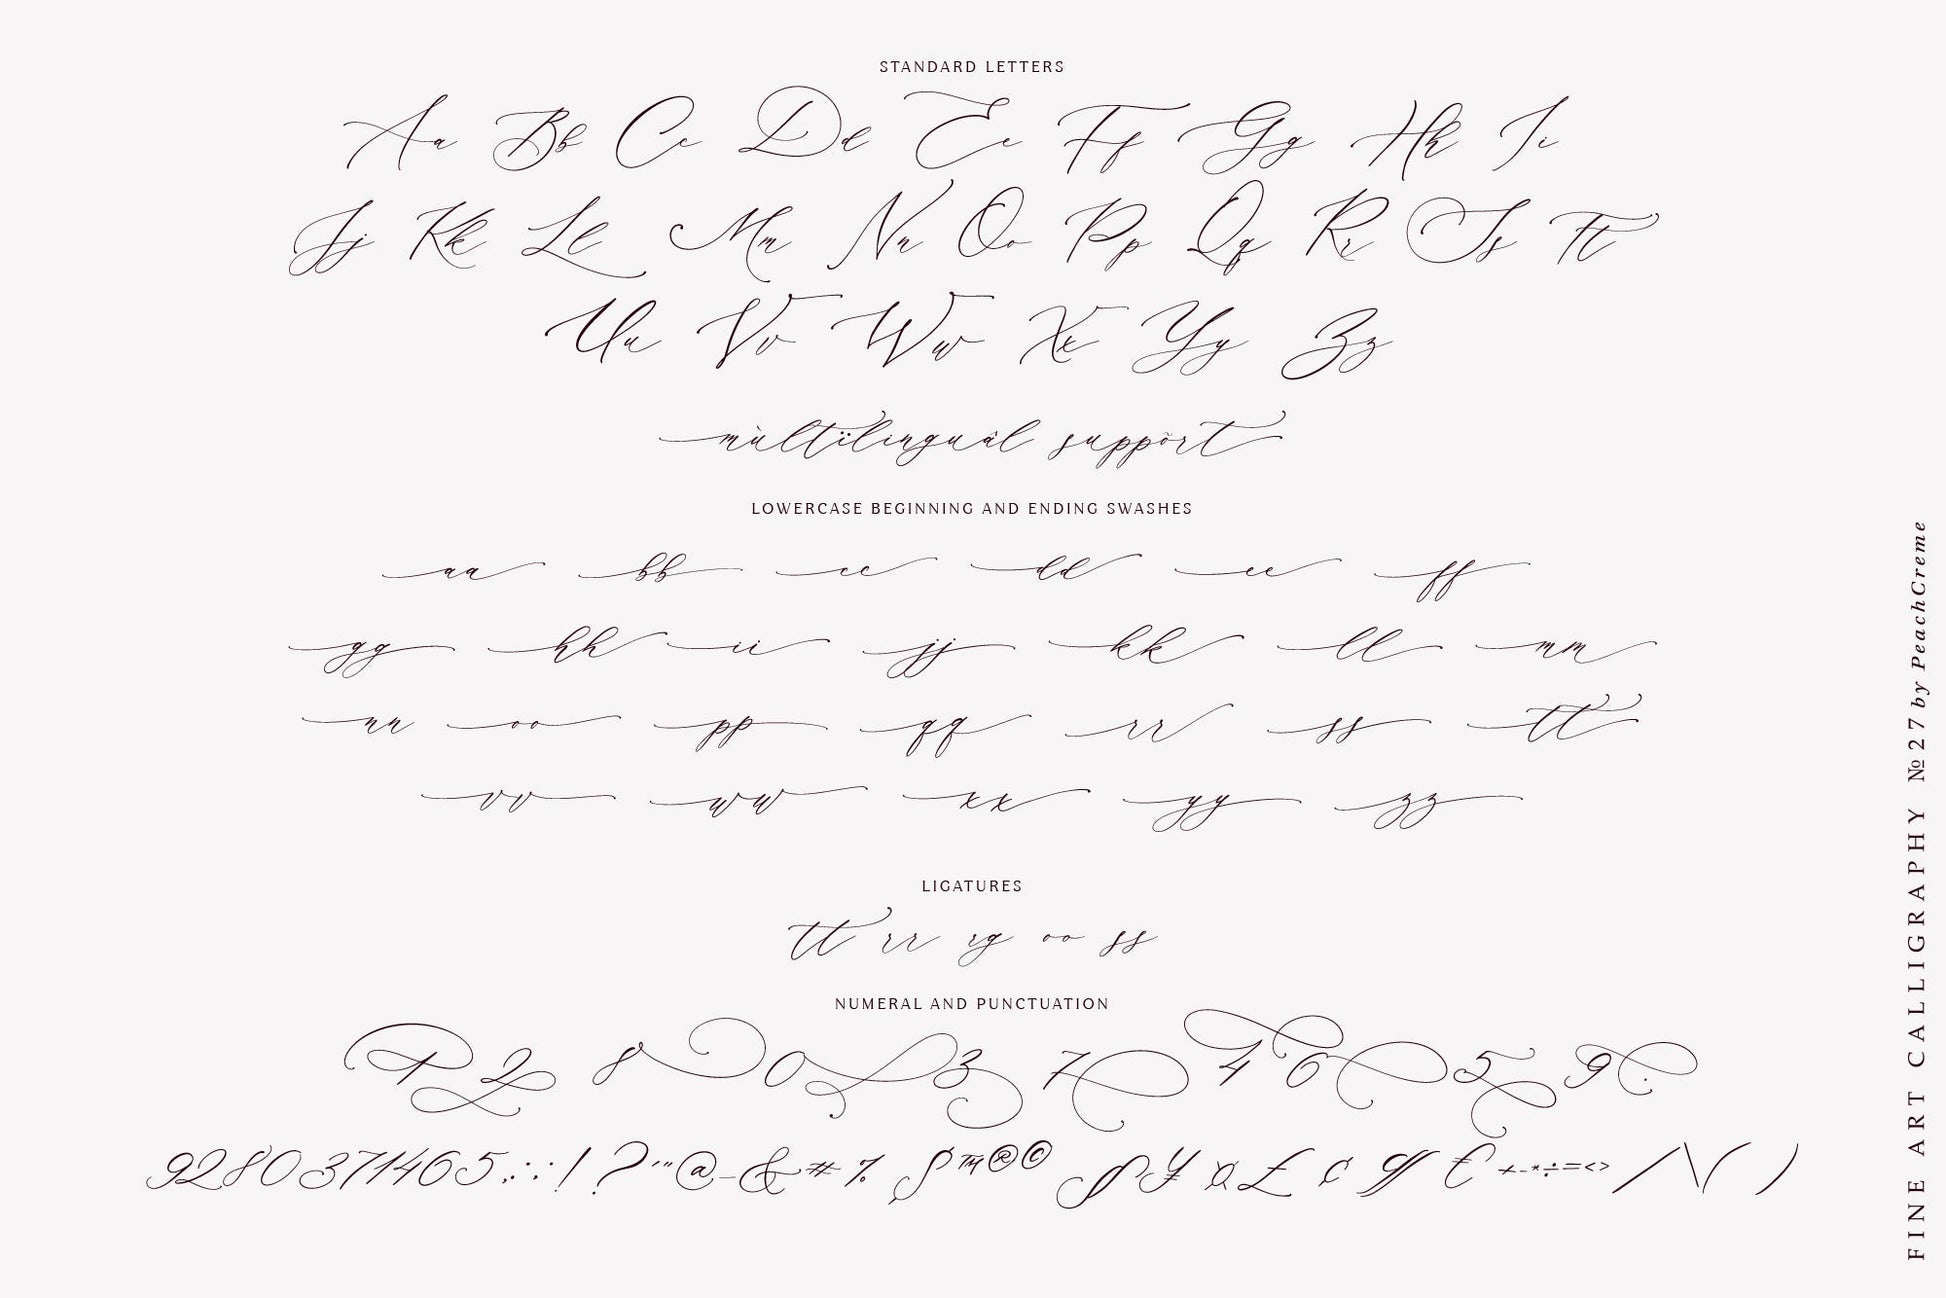 STANDARD LETTERS
Aa Bb Cc Dd Ee Ff Gg Hh Ii
Jj Kk Ll Mm Nn Oo Pp Qq Rr Ss Tt
Uu Vv Ww Xx Yy Zz
mùltïlinguâl suppõrt
LOWERCASE BEGINNING AND ENDING SWASHES
aa bb cc dd ee ff
gg hh ii jj kk ll mm
nn oo pp qq rr ss tt
vv ww xx yy zz
LIGATURES
tt rr rg oo ss
NUMERAL AND PUNCTUATION
1 2 8 0 3 7 4 6 5 9 .
9280371465,.:;!?'"@_&#%$™®©¥¤£¢€+-*÷=<>/\()
FINE ART CALLIGRAPHY №27 by PeachCreme